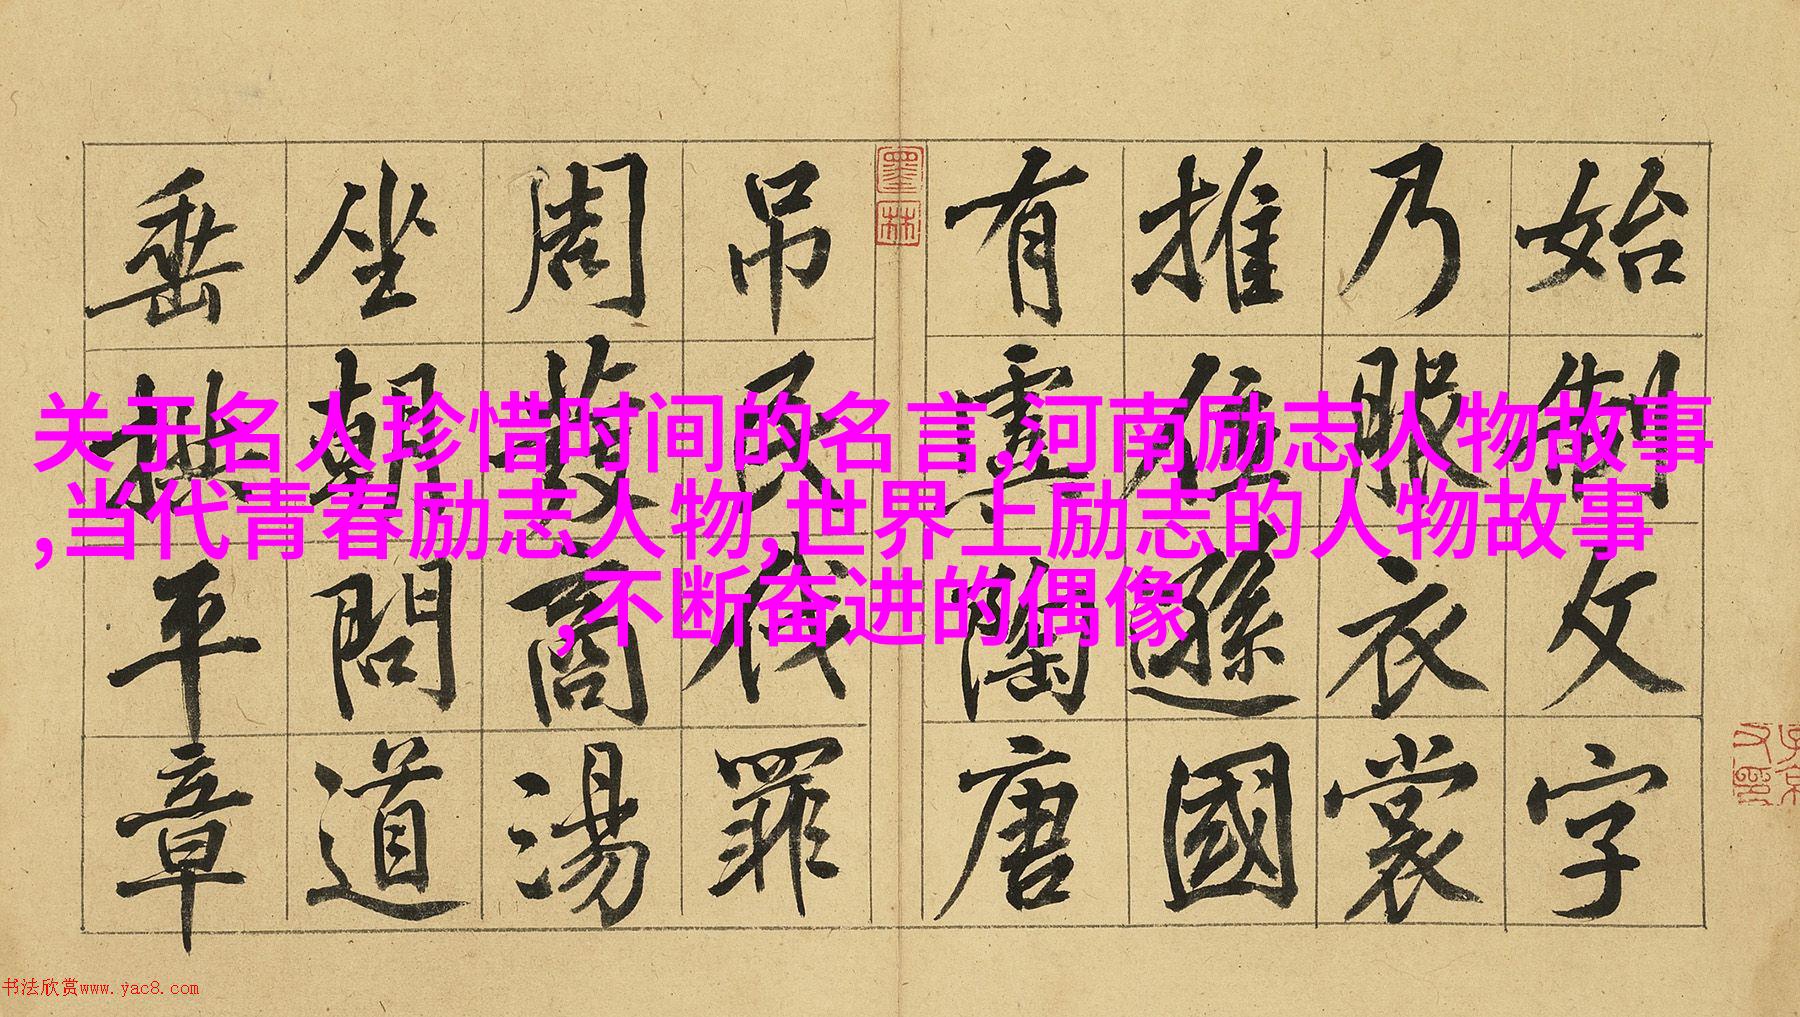 始制文字
乃服衣裳
推位遜國
有虞陶唐
吊民伐罪
周發商湯
坐朝問道
垂拱平章
关于名人珍惜时间的名言,河南励志人物故事
,当代青春励志人物,世界上励志的人物故事
,不断奋进的偶像
墨林
书法欣赏www.yac8.com